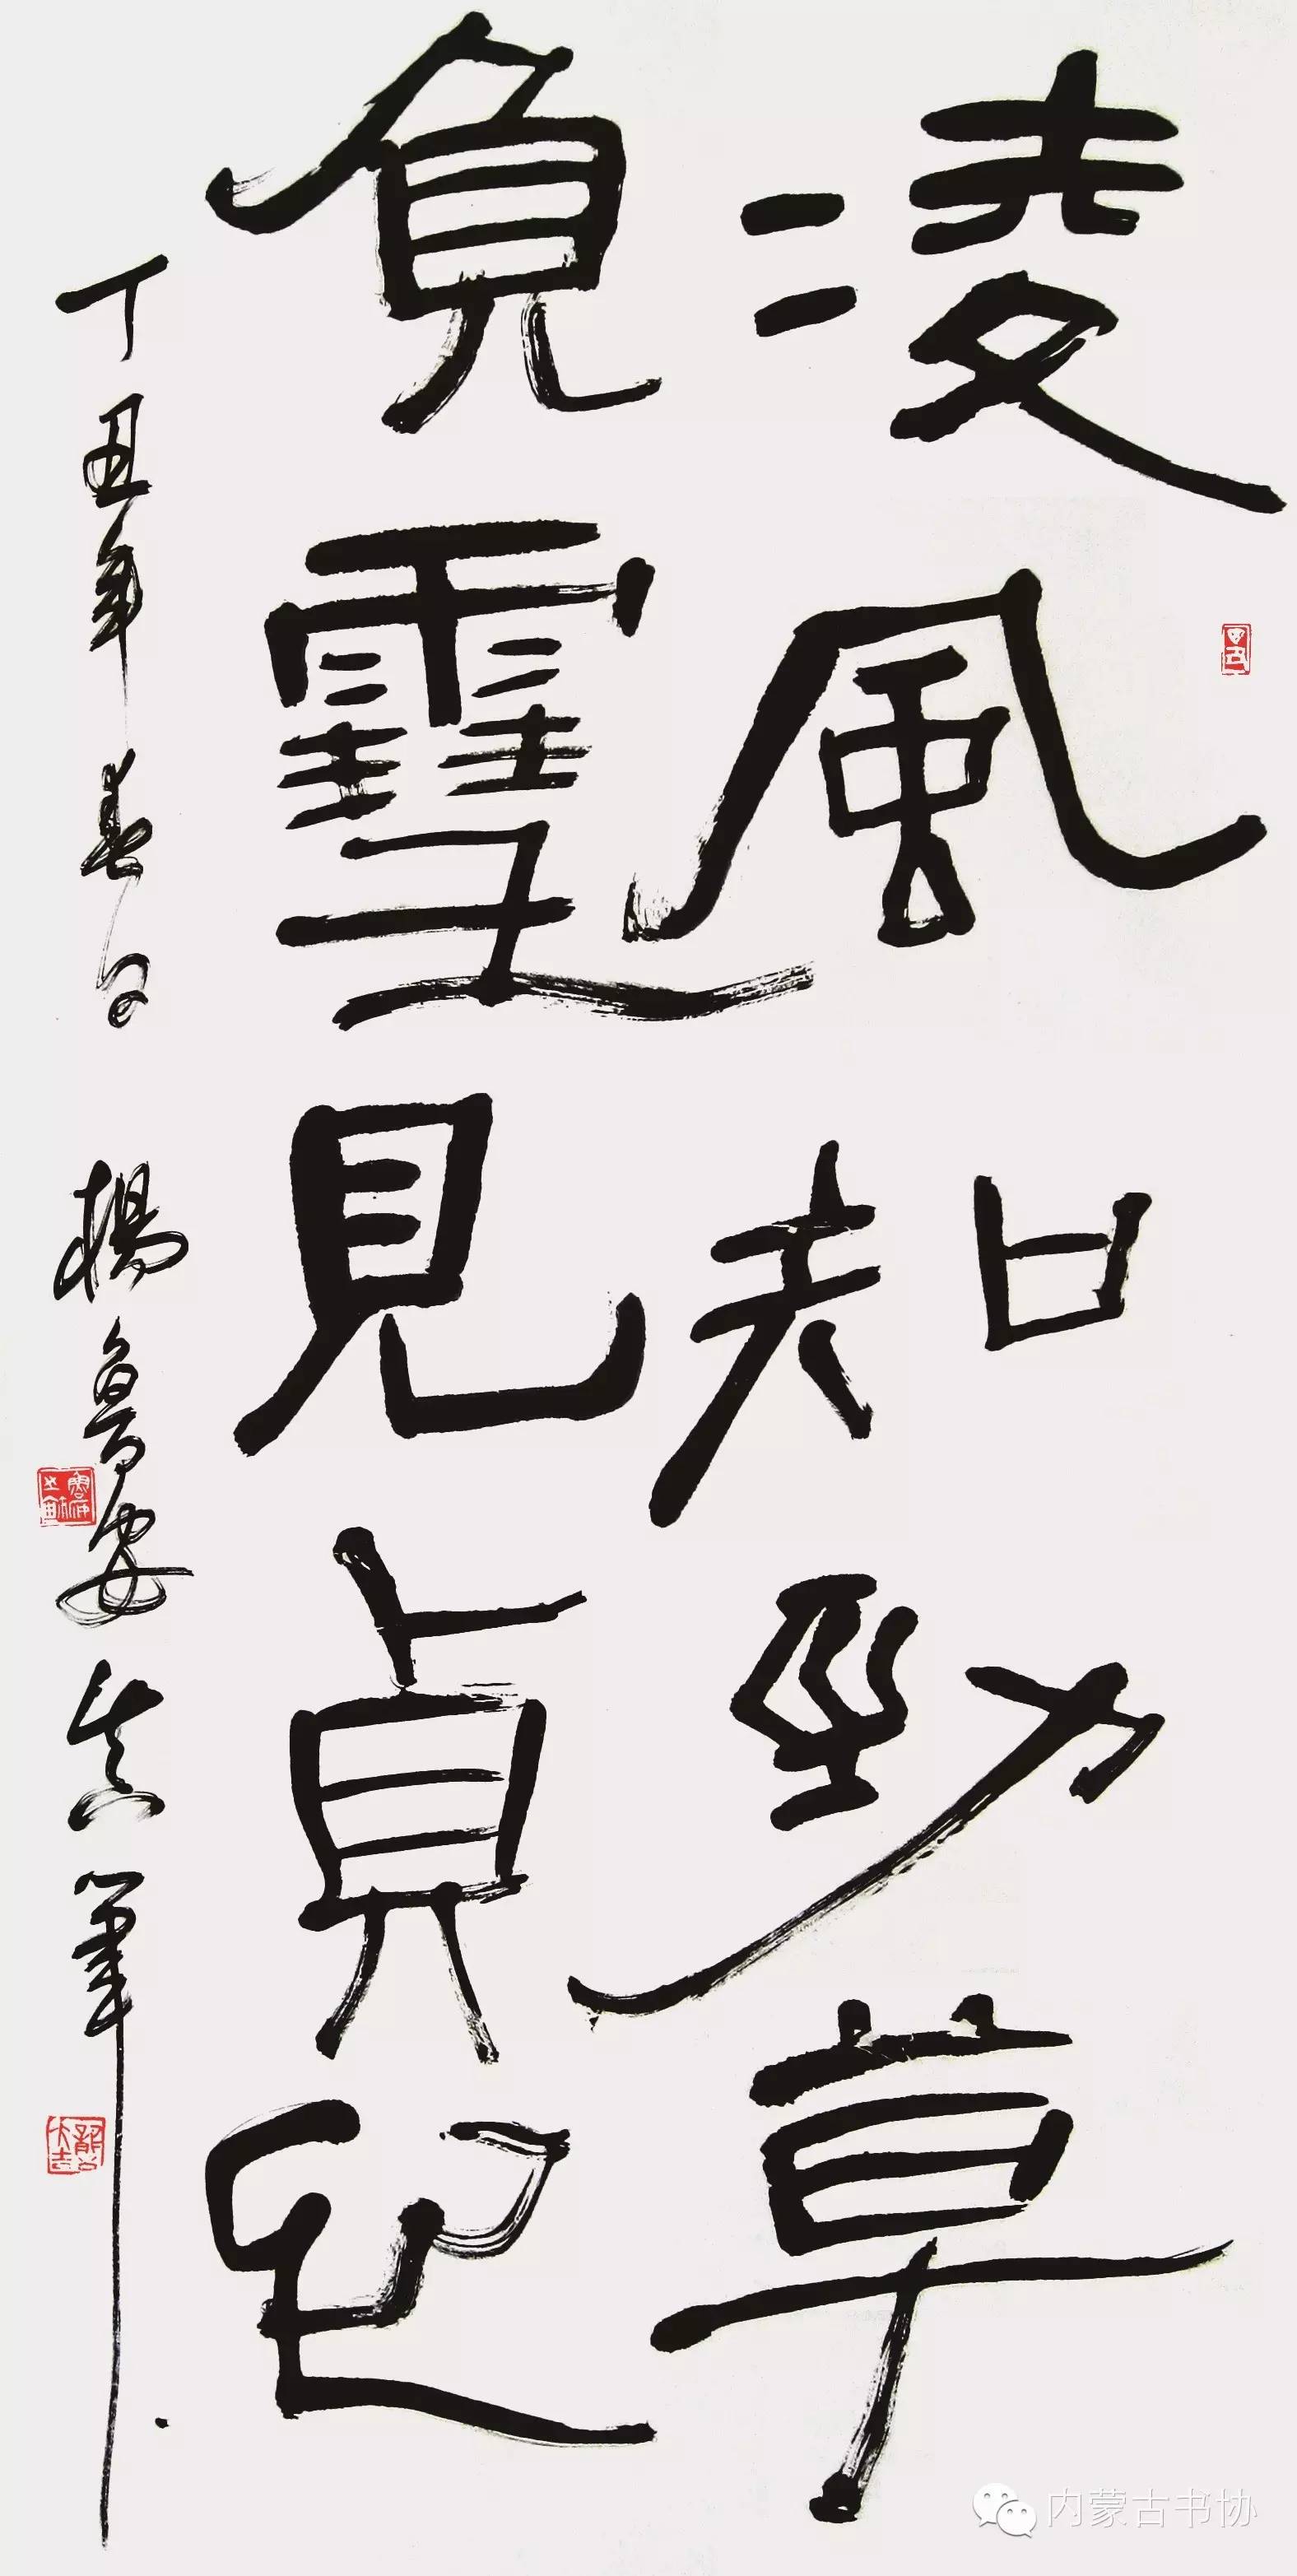 凌風知勁草
負雪見貞心
丁丑年春日 楊魯安 筆
内蒙古书协